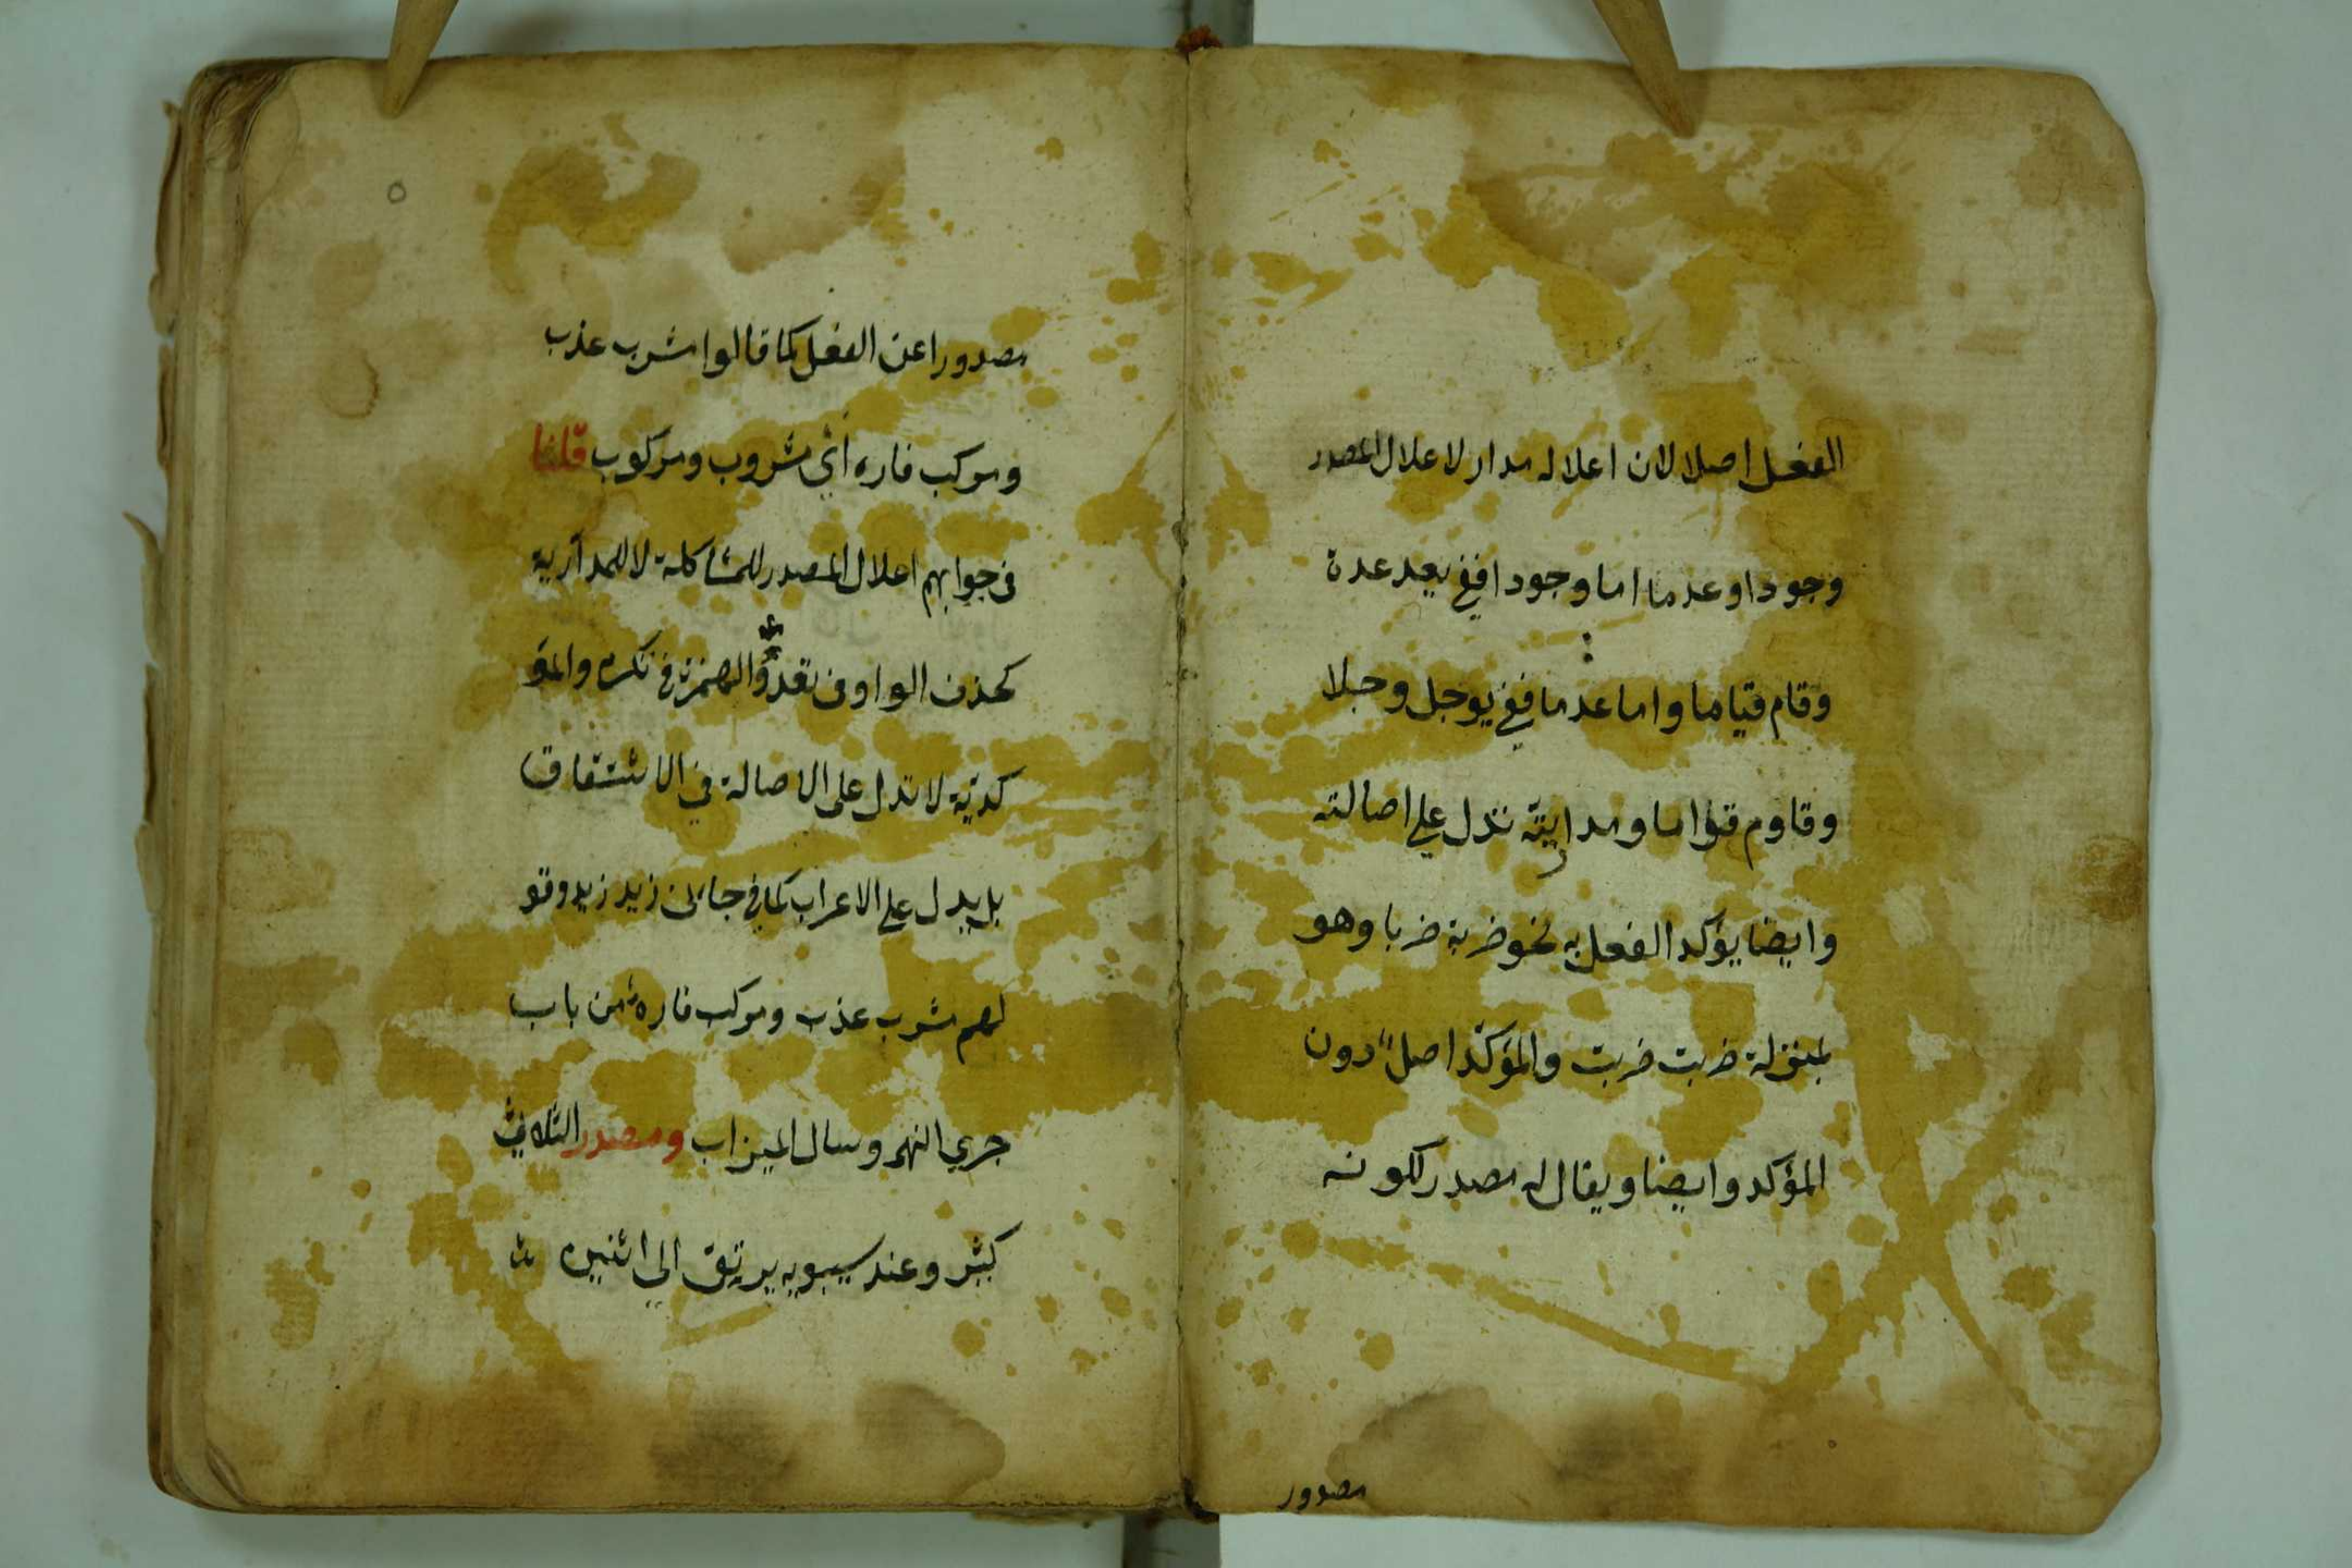 الفعل اصلا لان اعلاله مدار لاعلال المصدر
وجودا وعدما اما وجودا ففي يعد عدة
وقام قياما واما عدما ففي يوجل وجلا
وقاوم قواما ومداريته تدل علي اصالته
وايضا يؤكد الفعل به نحو ضربة ضربا وهو
بمنزلة ضربت ضربت والمؤكد اصلا دون
المؤكد وايضا ويقال له مصدر لكونه
مصدور
٥
مصدورا عن الفعل كما قالوا مشرب عذب
ومركب فاره أي مشروب ومركوب قلنا
في جوابهم اعلال المصدر للمشاكلة لا للمدارية
كحذف الواو في تعد والهمزة في تكرم والمؤ
كديّة لا تدل على الاصالة في الاشتقاق
بل يدل علي الاعراب كما في جاءني زيد زيد وقو
لهم مشرب عذب ومركب فاره من باب
جري النهر وسال الميزاب ومصدر الثلاثي
كثير وعند سيبويه يرتقي الي اثنين